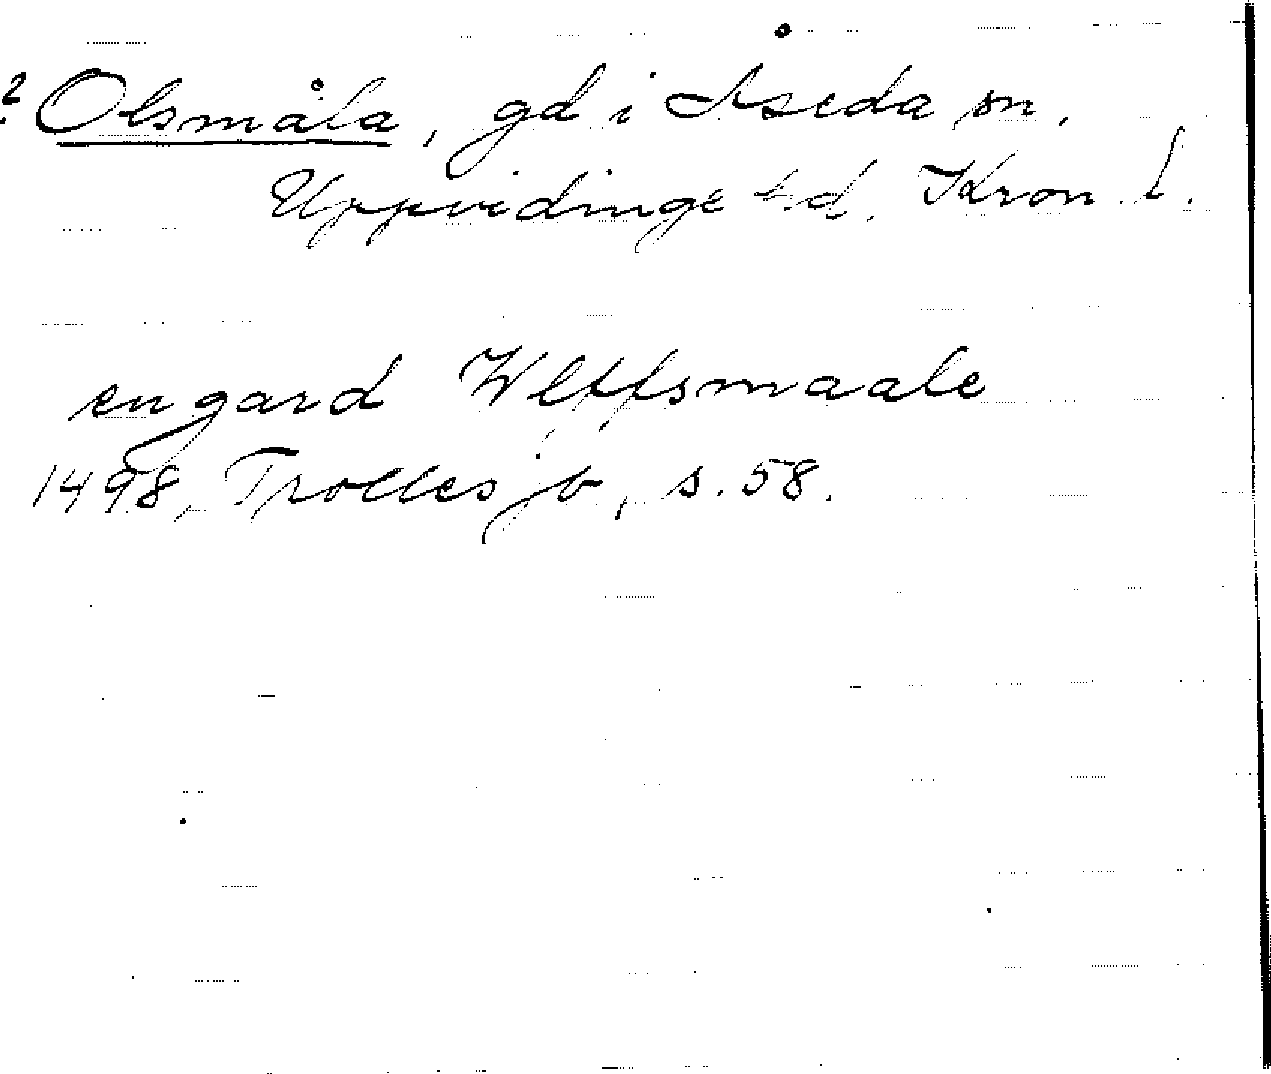 ? Olsmåla, gd i Åseda sn.
Uppvidinge hd. Kron. l.
en gard Wlffsmaale
1498, Trolles jb, s. 58.